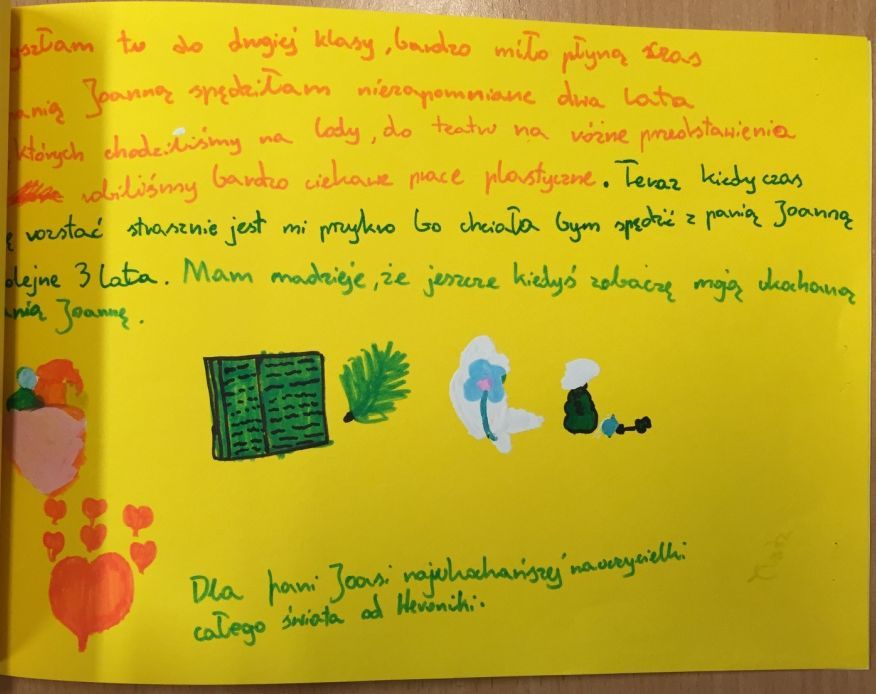 yszłam tu do drugiej klasy, bardzo miło płyną czas
anią Joanną spędziłam niezapomniane dwa lata
których chodziliśmy na lody, do teatru na różne przedstawienia
robiliśmy bardzo ciekawe prace plastyczne. Teraz kiedy czas
ę rozstać strasznie jest mi przykro bo chciała bym spędzić z panią Joanną
olejne 3 lata. Mam nadzieje, że jeszcze kiedyś zobaczę moją ukochaną
anią Joannę.
Dla pani Joasi najukochańszej nauczycielki
całego świata od Weroniki.